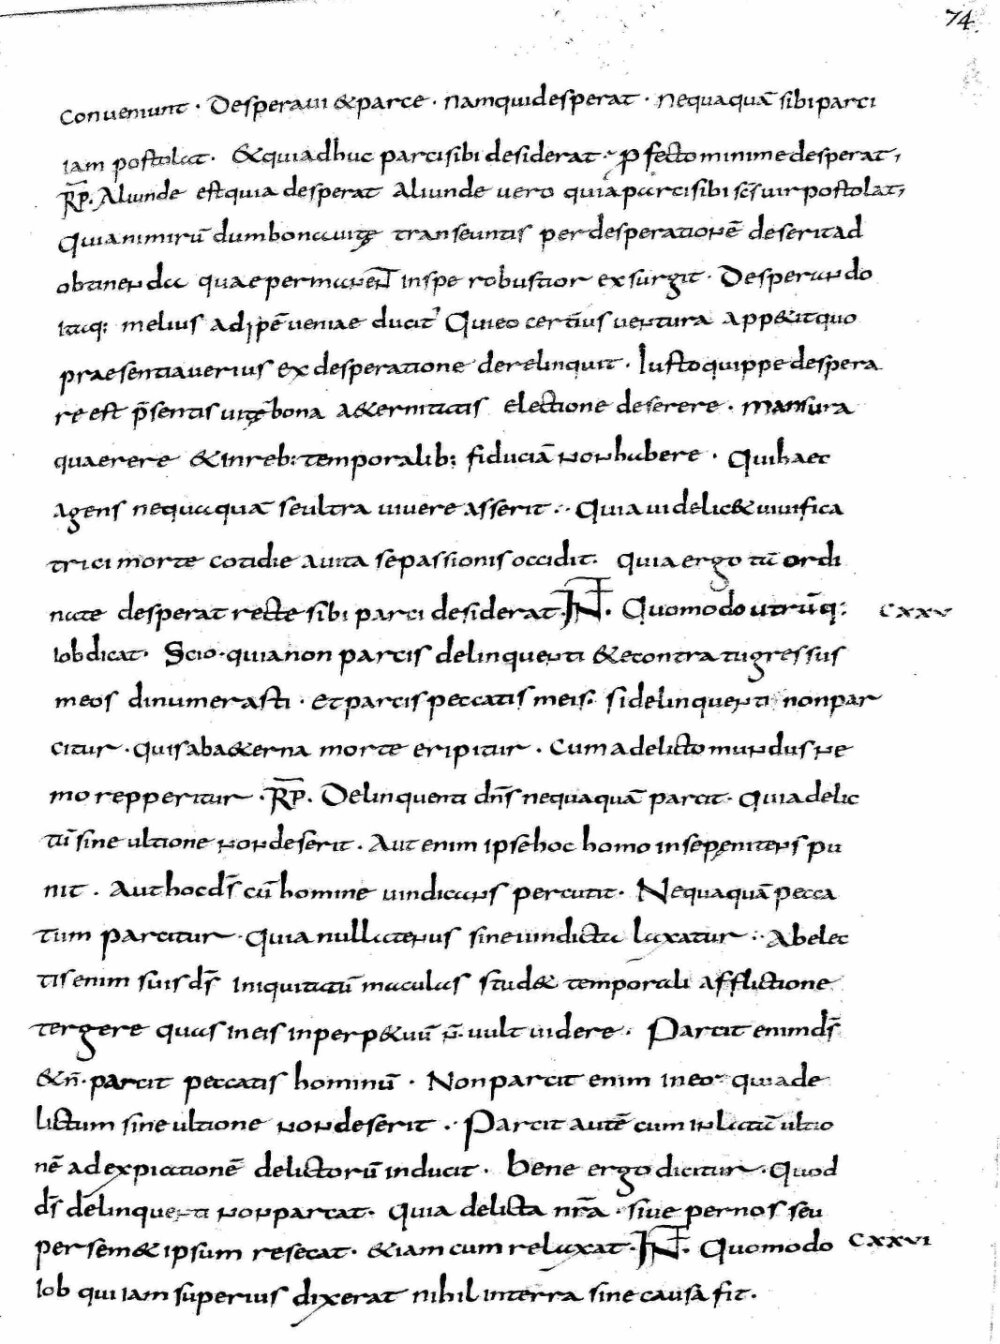 74
conueniunt · Desperaui & parce · Namqui desperat · nequaquā sibi parci
iam postolat · & qui adhuc parci sibi desiderat · pfecto minime desperat,
R̄P̄. Aliunde est quia desperat aliunde uero quia parci sibi sc̄s uir postolat,
Quia nimirū dum bona uitę transeuntis per desperationē deserit ad
obtinenda quae permanent in spe robustior exsurgit · Desperando
itaq; melius ad spē ueniae ducitʼ Qui eo certius uentura app&it quo
praesentia uerius ex desperatione derelinquit · Iusto quippe despera
re est p̄sentis uitę bona a&ernitatis electione deserere · mansura
quaerere & in reb; temporalib; fiduciā non habere · Qui haec
agens nequaquā se ultra uiuere asserit · Quia uidelic& uiuifica
trici morte cotidie a uita se passionis occidit · quia ergo tū ordi
nate desperat recte sibi parci desiderat · IN̄T. Quomodo utrūq; CXXV
Iob dicat · Scio · quia non parcis delinquenti & e contra tu gressus
meos dinumerasti · et parcis peccatis meis · si delinquenti non par
citur · quis ab a&erna morte eripitur · Cum a delicto mundus ne
mo repperitur · R̄P̄. Delinquenti dn̄s nequaquā parcit · Quia delic
tū sine ultione non deserit · Aut enim ipse hoc homo in se pęnitens pu
nit · Aut hoc ds̄ cū homine uindicans percutit · Nequaquā pecca
tum parcitur · Quia nullatenus sine uindicta laxatur · Ab elec
tis enim suis ds̄ iniquitatū maculas stud& temporali afflictione
tergere quas in eis in perp&uū n̄ uult uidere · Parcit enim ds̄
& n̄ · parcit peccatis hominū · Non parcit enim in eo quia de
lictum sine ultione non deserit · Parcit autē cum inlatū ultio
nē ad expiationē delictorū inducit · bene ergo dicitur · Quod
ds̄ delinquenti non parcat · quia delicta nr̄a · siue per nos seu
per sem&ipsum resecat · &iam cum relaxat · IN̄T. Quomodo CXXVI
Iob qui iam superius dixerat nihil in terra sine causa fit ·